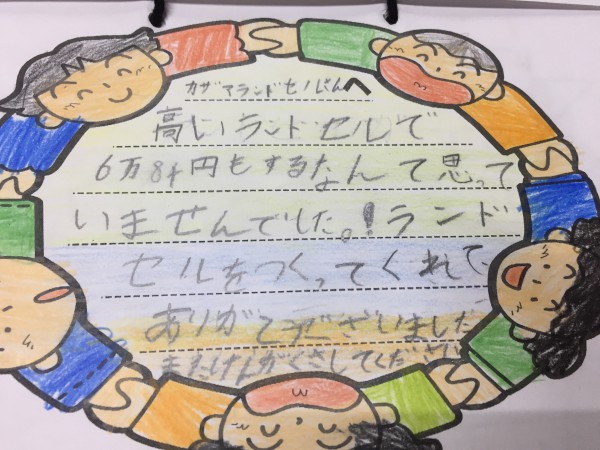 カザマランドセルさんへ
高いランドセルで
6万8千円もするなんて思って
いませんでした。!ランド
セルをつくってくれて、
ありがとうございました
またけんがくさしてください